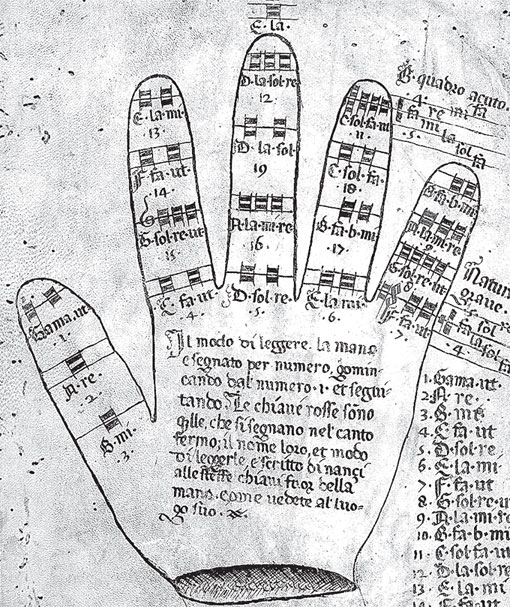 E. la.
D. la sol. re
12.
D. la. sol.
19
A. la. mi. re
16.
D. sol. re.
5.
E. la. mi.
13.
F. fa. ut
14.
G. sol. re. ut
15
C. fa. ut
4.
C sol. fa. ut
11
C. sol. fa.
18.
B. fa. b. mi
17.
E. la. mi.
6.
B. quadro acuto.
4. re mi fa
5. mi la sol fa
B. fa b. mi
A. la. mi. re
G sol re ut
8
F. fa. ut.
7.
Gama. ut
1.
A. re.
2.
B. mi.
3.
Natur
grave.
4.
Il modo di leggere. la mano
e segnato per numero, comin-
cando dal numero. 1. et segui-
tando. Le chiavi rosse sono
qlle, che si segnano nel canto
fermo; il nome loro, et modo
di leggerle, e scritto di nanci
alle stesse chiavi fuor della
mano. come vedete al luo-
go suo.
1. Gama. ut.
2. A re.
3. B. mi
4. C fa ut
5. D. sol re
6. E la mi
7. F fa ut
8. G sol re u
9. A la mi re
10. B fa b mi
11. C sol fa ut
12. D la sol re
13. E la mi
14. F fa ut